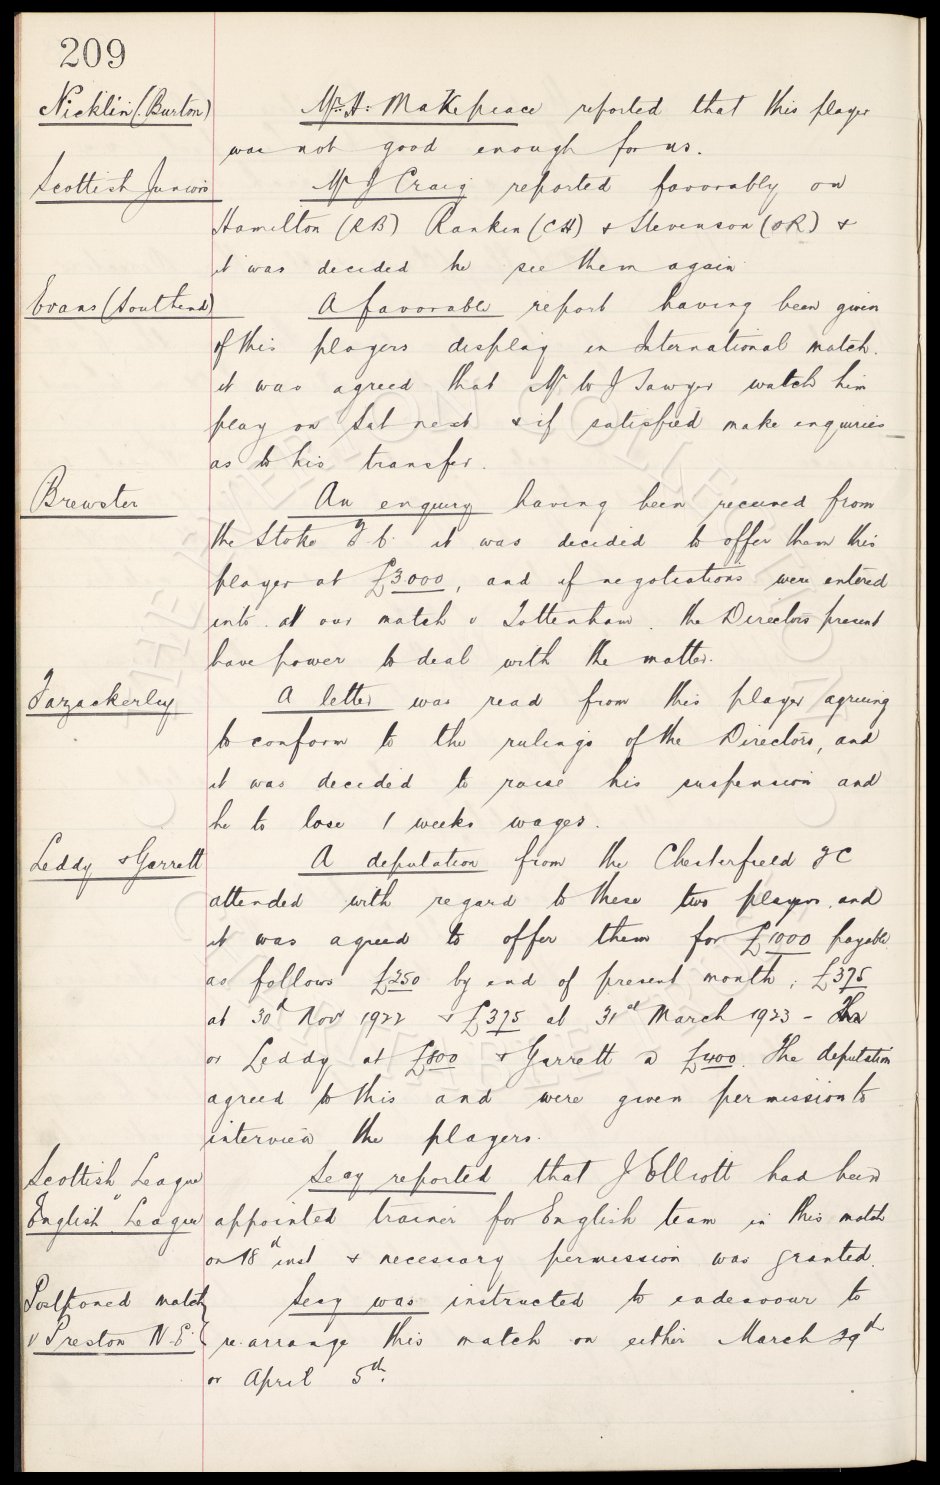 209
Nicklin (Burton) Mr. H. Makepeace reported that this player
was not good enough for us.
Scottish Juniors Mr J Craig reported favorably on
Hamilton (RB) Rankin (CH) & Stevenson (OR) &
it was decided he see them again
Evans (Southend) A favorable report having been given
of this players display in International match.
it was agreed that Mr W J Sawyer watch him
play on Sat next & if satisfied make enquiries
as to his transfer.
Brewster An enquiry having been received from
the Stoke F.C. it was decided to offer them this
player at £3000, and if negotiations were entered
into at our match v Tottenham. the Directors present
have power to deal with the matter.
Fazackerley A letter was read from this player agreeing
to conform to the rulings of the Directors, and
it was decided to raise his suspension and
he to lose 1 weeks wages.
Leddy & Garrett A deputation from the Chesterfield FC
attended with regard to these two players, and
it was agreed to offer them for £1000 payable
as follows £250 by end of present month; £375
at 30th Nov 1922 & £375 at 31st March 1923 -
or Leddy at £800 & Garrett @ £400. The deputation
agreed to this and were given permission to
interview the players.
Scottish League Secy reported that J Elliott had been
v English League appointed trainer for English team in this match
on 18th inst & necessary permission was granted.
Postponed match Secy was instructed to endeavour to
v Preston N.E. re-arrange this match on either March 29th
or April 5th.
THE EVERTON COLLECTION